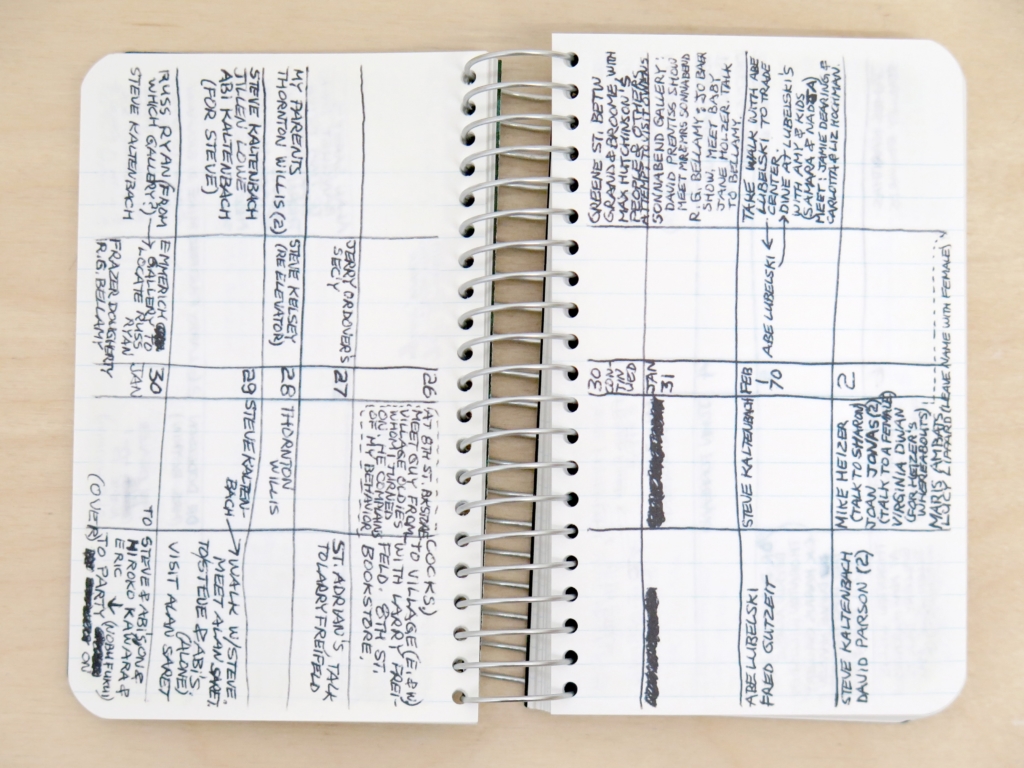 26 (AT 8TH ST. BKSTORE
MEET GUY FROM
VILLAGE OLDIES
WHOM TURNED
ON THE COCKMANS
OF MY BEHAVIOR
COCKS)
TO VILLAGE (E. & W)
WITH LARRY FREI-
FELD. 8TH ST.
BOOKSTORE,
JERRY ORDOVER'S
SEC'Y
27
ST. ADRIAN'S. TALK
TO LARRY FREIFELD
MY PARENTS
THORNTON WILLIS (2)
STEVE KELSEY
(RE ELEVATOR)
28
THORNTON
WILLIS
STEVE KALTENBACH
JILLEN LOWE
ABJ KALTENBACH
(FOR STEVE)
29
STEVE KALTEN-
BACH
WALK W/STEVE.
MEET ALAN SARET.
TO STEVE & ABJ'S,
(ALONE)
VISIT ALAN SARET
RUSS RYAN (FROM
WHICH GALLERY?)
STEVE KALTENBACH
EMMERICH
GALLERY TO
LOCATE RUSS
RYAN
FRAZER DOUGHERTY
R.G. BELLAMY
JAN
30
TO
STEVE & ABJ'S ONE &
HIROKO KAWARA &
ERIC
(NOBU FUKUI)
TO PARTY ON
(OVER)
(30
CON-
TIN
UED
GREENE ST. BETW
GRAND & BROOME, WITH
MAX HUTCHINSON'S
PEOPLE & OTHERS
SONNABEND GALLERY:
DAVID PRENTISS SHOW
MEET MR & MRS SONNABEND
R.G. BELLAMY: JO BAER
SHOW. MEET BABY
JANE HOLZER. TALK
TO BELLAMY
JAN
31
ABE LUBELSKI
FRED GUTZEIT
STEVE KALTENBACH
FEB
1
70
ABE LUBELSKI
TAKE WALK WITH ABE
LUBELSKI. TO TRADE
CENTER.
DINE AT LUBELSKI'S
WITH AMY & KIDS
(SAMARA & NADJA)
MEET: JAMIE DEARING, &
CARLOTTA, LIZ HOCHMAN.
STEVE KALTENBACH
DAVID PARSON (2)
MIKE HEIZER
(TALK TO SHARON)
JOAN JONAS (2)
(TALK TO A FEMALE)
VIRGINIA DWAN
(FOR HEIZER'S
WHEREABOUTS)
MARIS AMBATS
LUCY LIPPARD (LEAVE NAME WITH FEMALE)
2